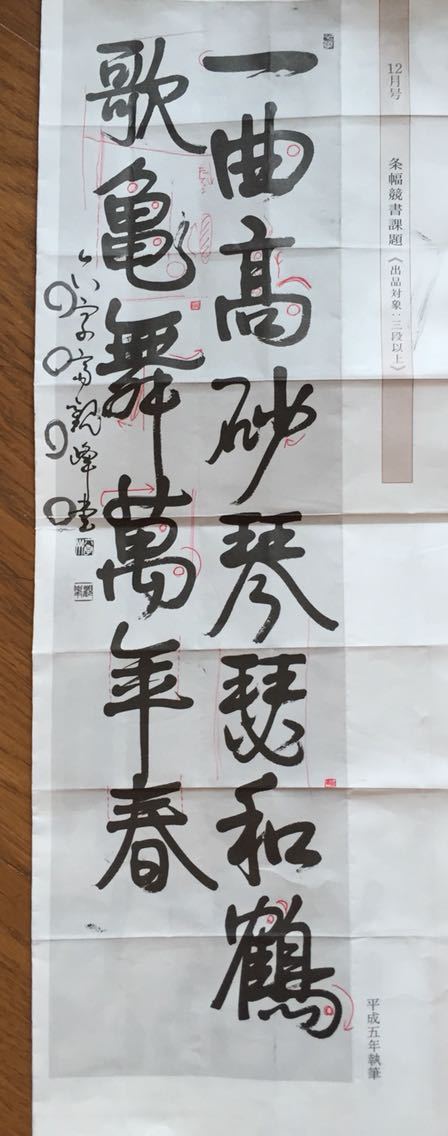 12月号 条幅競書課題《出品対象:三段以上》
一曲高砂琴瑟和鶴
歌亀舞萬年春
平成五年執筆